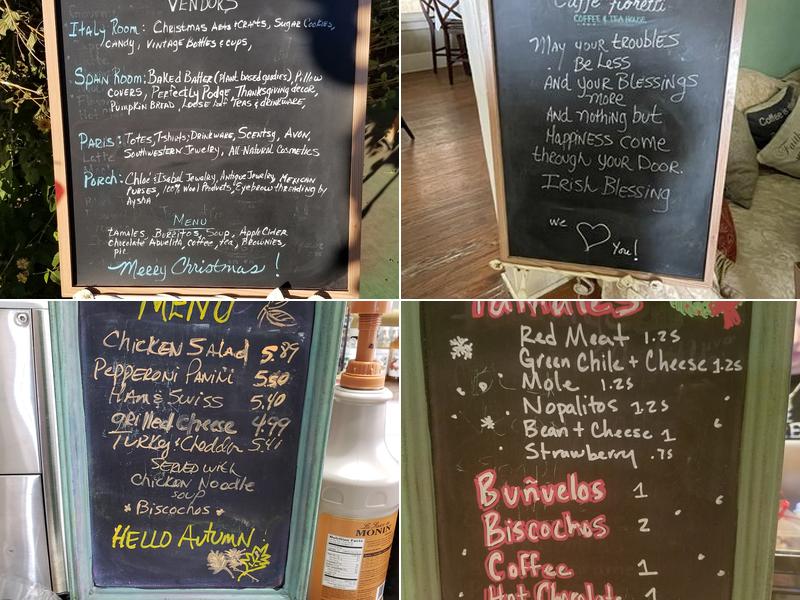 VENDORS
Italy Room: Christmas Arts & Crafts, Sugar Cookies,
Candy, Vintage Bottles & Cups,
Spain Room: Baked Batter (Plant based goodies), Pillow
covers, Perfectly Podge, Thanksgiving decor,
Pumpkin Bread, Loose leaf teas & drinkware,
Paris: Totes, T-shirts, Drinkware, Scentsy, Avon,
Southwestern Jewelry, All-Natural Cosmetics
Porch: Chloe & Isabel Jewelry, Antique Jewelry, Mexican
Purses, 100% Wool Products, Eyebrow threading by
Aysha
Menu
tamales, Burritos, Soup, Apple Cider
chocolate Abuelita, coffee, tea, Brownies,
pie
Merry Christmas!
Caffe Fioretti
COFFEE & TEA HOUSE
May your troubles
Be Less
And your Blessings
more
And nothing but
Happiness come
through your Door.
Irish Blessing
we
You!
MENU
Chicken Salad 5.89
Pepperoni Panini 5.50
Ham & Swiss 5.40
grilled cheese 4.99
Turkey & Cheddar 5.41
Served with
Chicken Noodle
soup
Biscochos
Hello Autumn!
MONIN
Nutrition Facts
Tamales
Red Meat 1.25
Green Chile + Cheese 1.25
Mole 1.25
Nopalitos 1.25
Bean + Cheese 1
Strawberry .75
Buñuelos 1
Biscochos 2
Coffee 1
Hot Chocolate 1